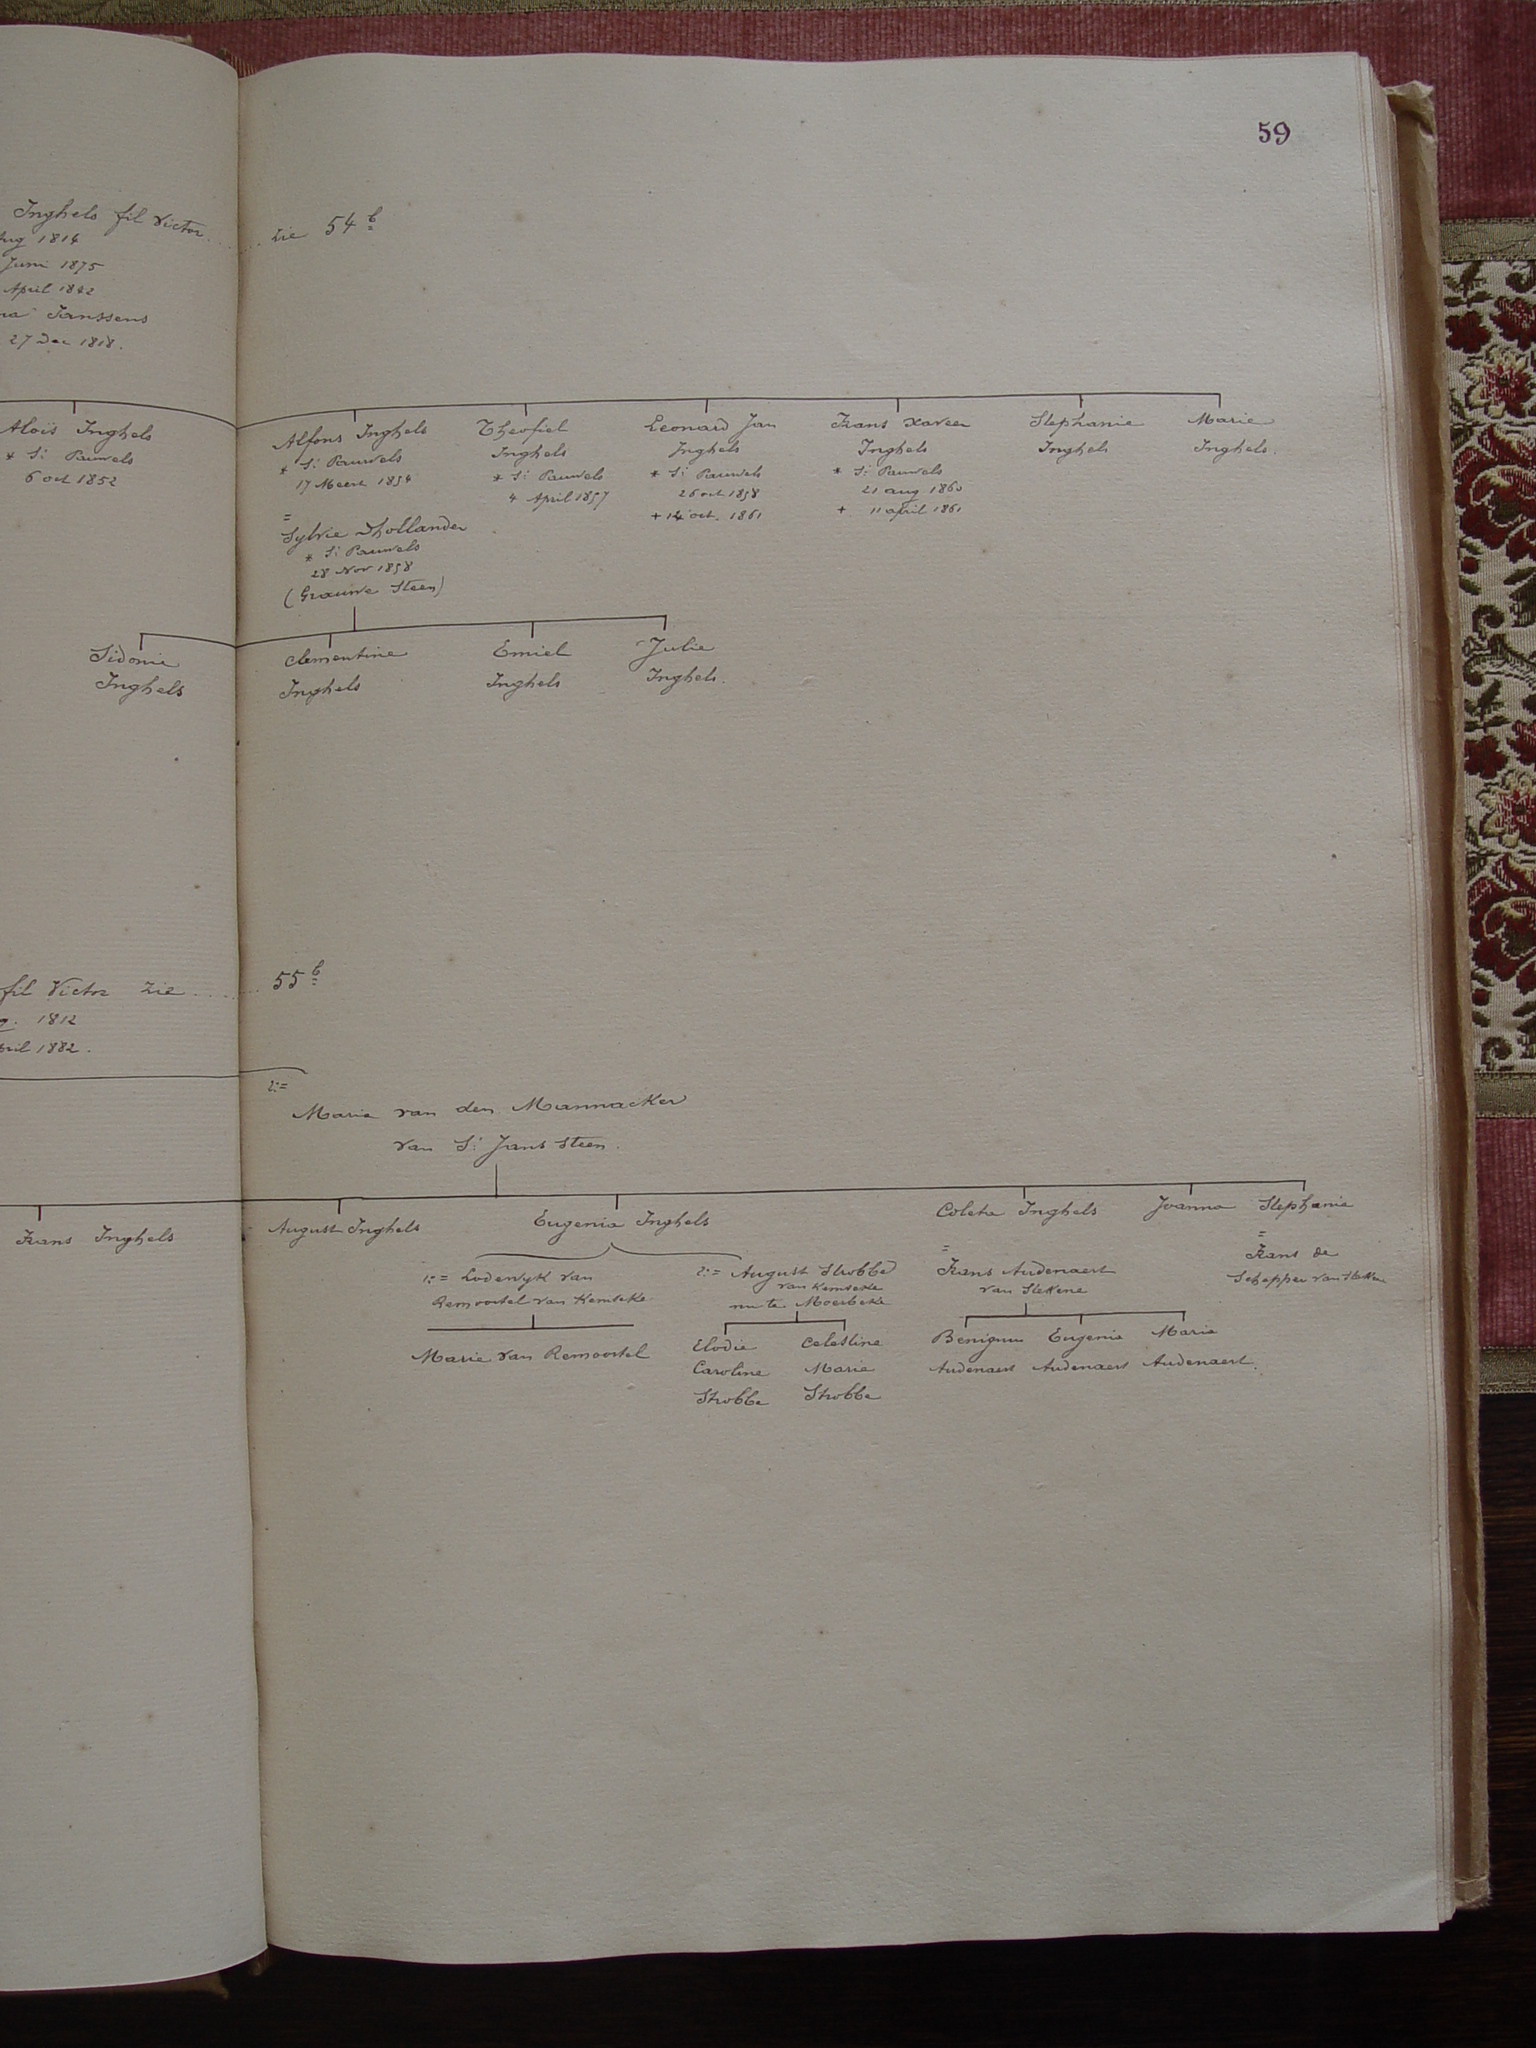 59
Inghels fil Victor ..... zie 54 b
Aug 1814
Juni 1875
April 1842
Janssens
27 Dec 1818.
Aloïs Inghels
* St Pauwels
6 oct 1852
Alfons Inghels
* St Pauwels
17 Meert 1854
=
Sylvie Dhollander
* St Pauwels
28 Nov 1858
(Grauwe Steen)
Theofiel
Inghels
* St Pauwels
4 April 1857
Leonard Jan
Inghels
* St Pauwels
26 oct 1858
+ 14 oct. 1861
Frans Xaveer
Inghels
* St Pauwels
21 aug 1860
+ 11 april 1861
Stephanie
Inghels
Marie
Inghels.
Sidonie
Inghels
Clementine
Inghels
Emiel
Inghels
Julie
Inghels.
fil Victor zie ..... 55 b
1812
April 1882.
2: =
Marie van den Mannacker
van St Jans Steen.
Frans Inghels
August Inghels
Eugenia Inghels
1: = Lodewyk van
Remoortel van Kemseke
Marie van Remoortel
2: = August Strobbe
van Kemseke
nu te Moerbeke
Elodie
Caroline
Strobbe
Celestine
Marie
Strobbe
Coleta Inghels
=
Frans Audenaert
van Stekene
Benignus
Audenaert
Eugenie
Audenaert
Marie
Audenaert.
Joanna
Stephanie
=
Frans de
Schepper van Stekene